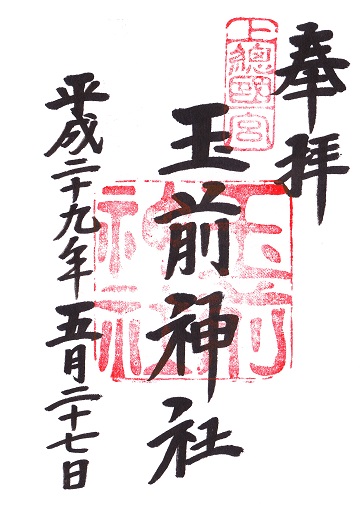 奉拝
上總國一宮
玉前神社
玉前
神社
平成二十九年五月二十七日